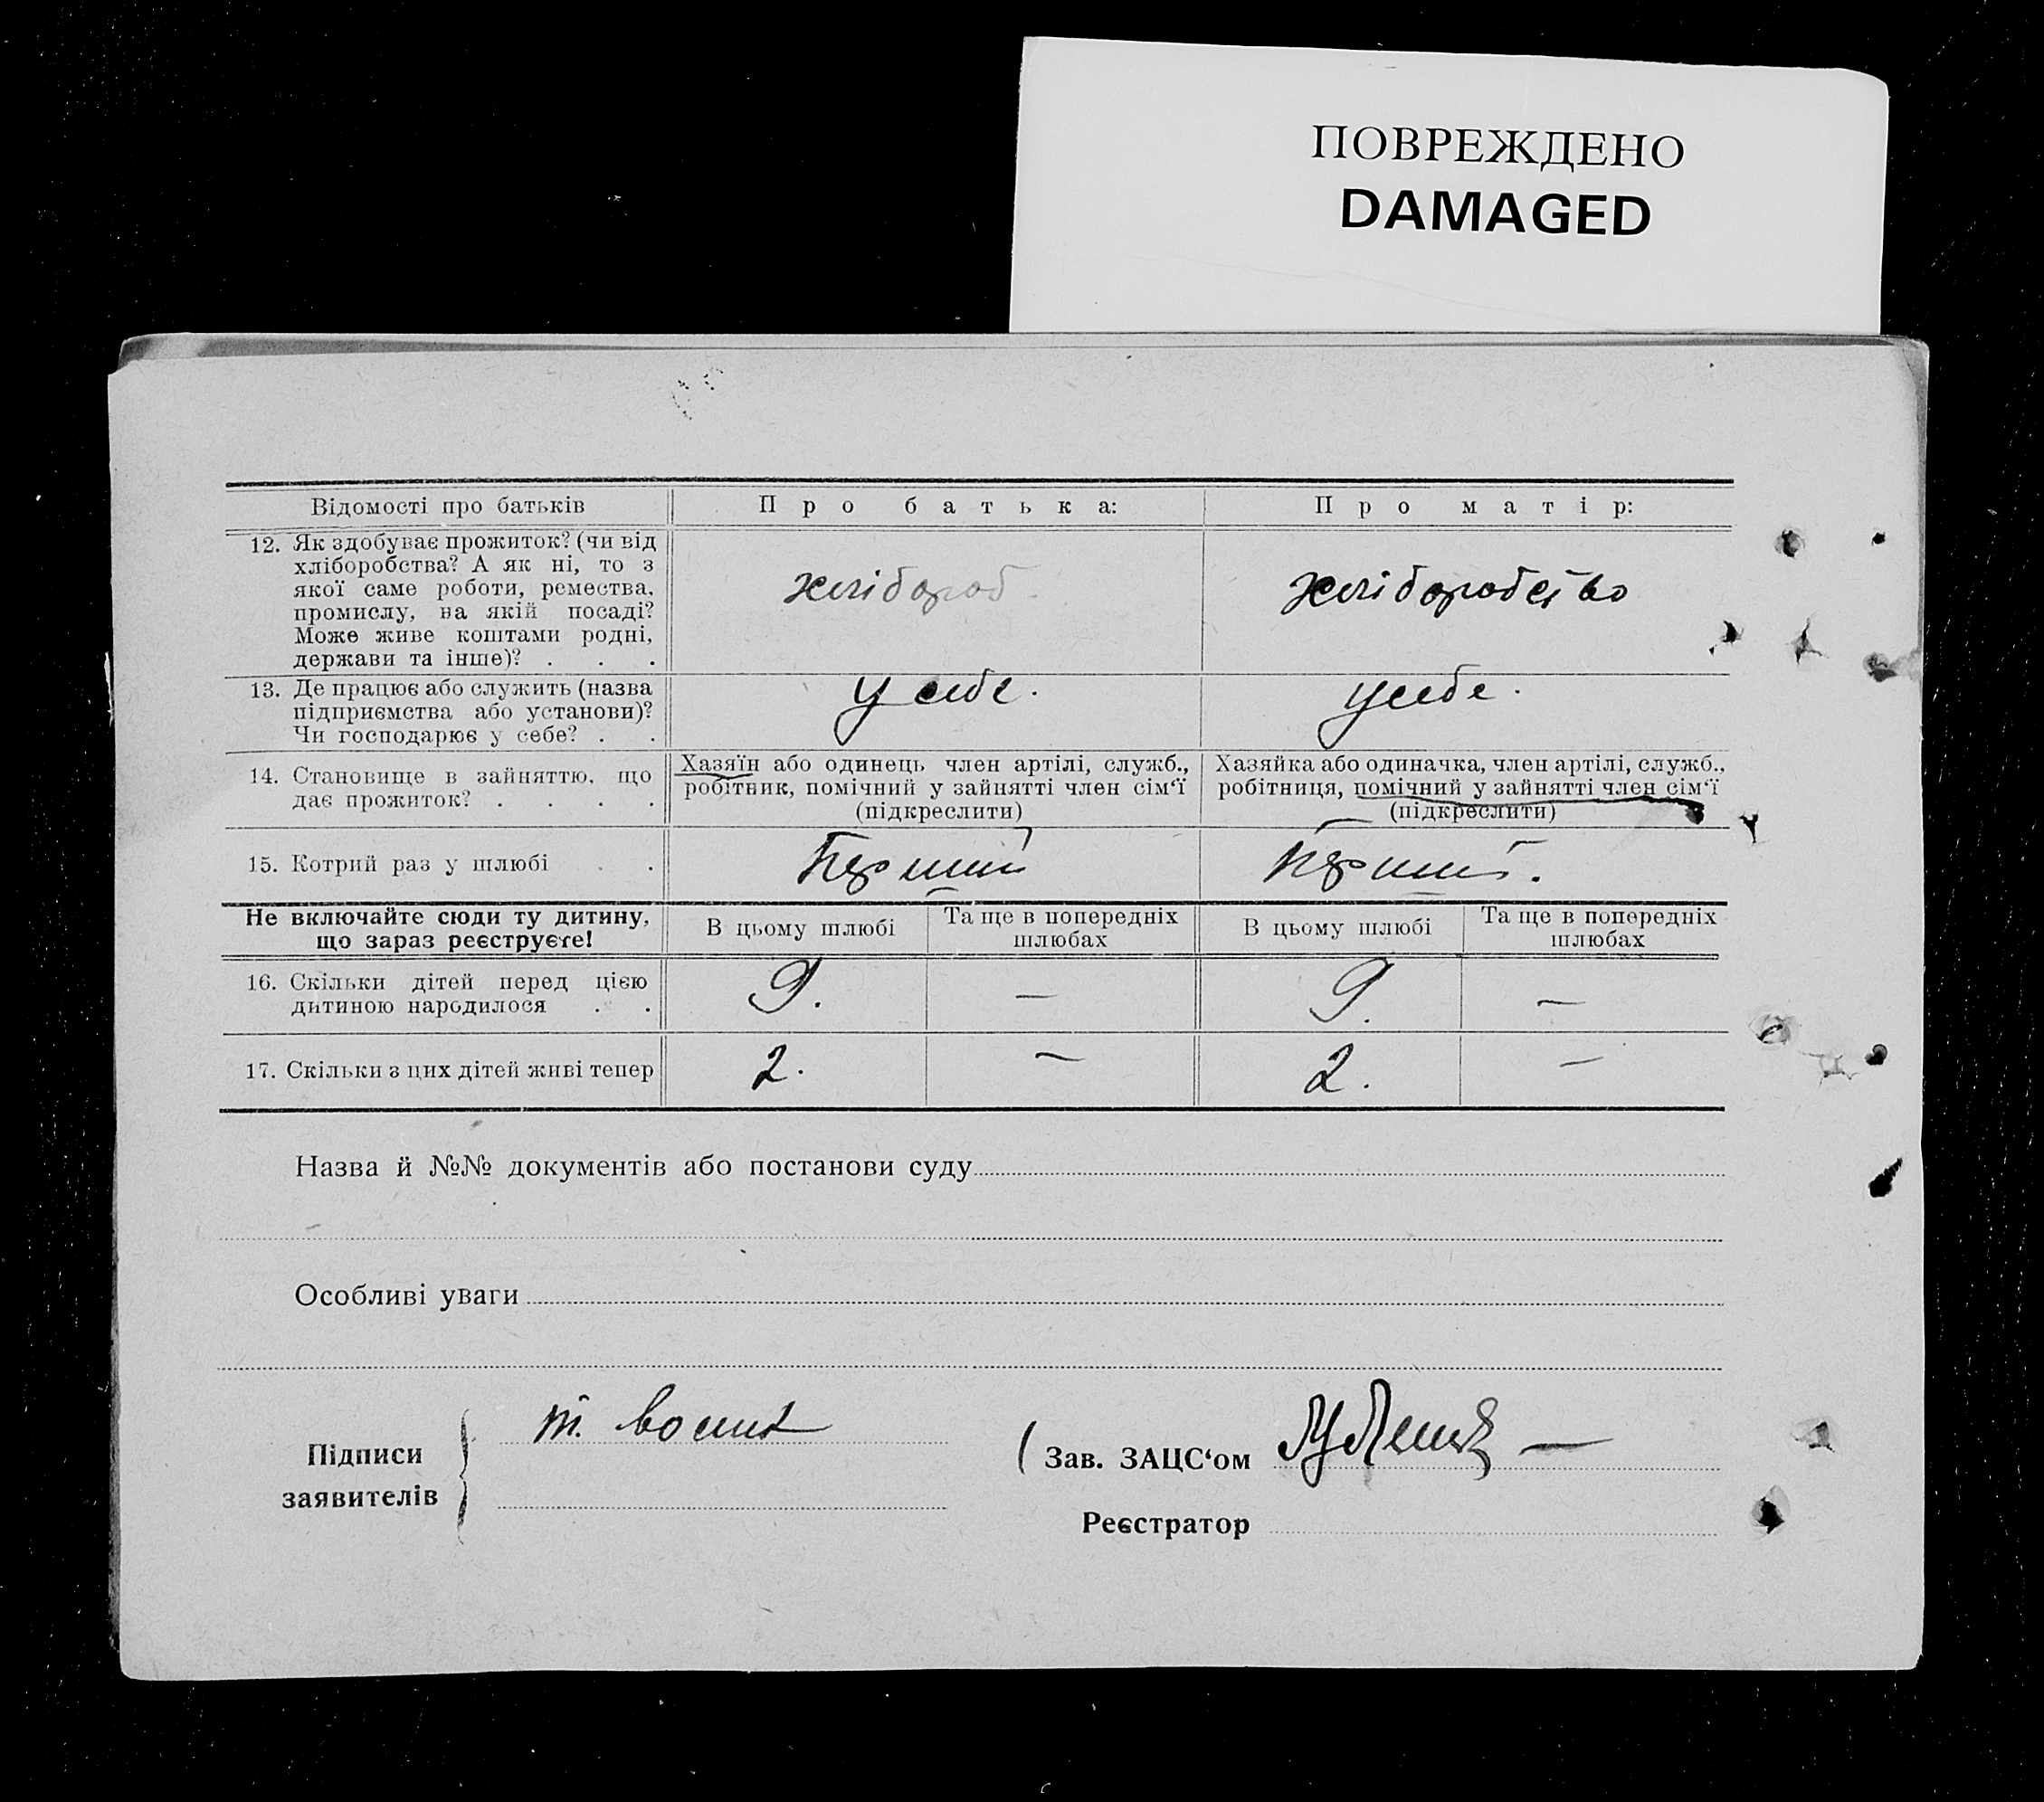 ПОВРЕЖДЕНО
DAMAGED
Відомості про батьків
Про батька:
Про матір:
12. Як здобуває прожиток? (чи від
хліборобства? А як ні, то з
якої саме роботи, ремества,
промислу, на якій посаді?
Може живе коштами родні,
держави та інше)? . . .
хлібороб
хліборобство
13. Де працює або служить (назва
підприємства або установи)?
Чи господарює у себе? . .
у себе.
у себе.
14. Становище в зайняттю, що
дає прожиток? . . . .
Хазяїн або одинець член артілі, служб.,
робітник, помічний у зайнятті член сім‘ї
(підкреслити)
Хазяйка або одиначка, член артілі, служб.,
робітниця, помічний у зайнятті член сім‘ї
(підкреслити)
15. Котрий раз у шлюбі . .
Перший
Перший.
Не включайте сюди ту дитину,
що зараз реєструєте!
В цьому шлюбі
Та ще в попередніх
шлюбах
В цьому шлюбі
Та ще в попередніх
шлюбах
16. Скільки дітей перед цією
дитиною народилося . .
9.
—
9.
—
17. Скільки з цих дітей живі тепер
2.
—
2.
—
Назва й №№ документів або постанови суду
Особливі уваги
Підписи
заявителів
Зав. ЗАЦС‘ом
Реєстратор